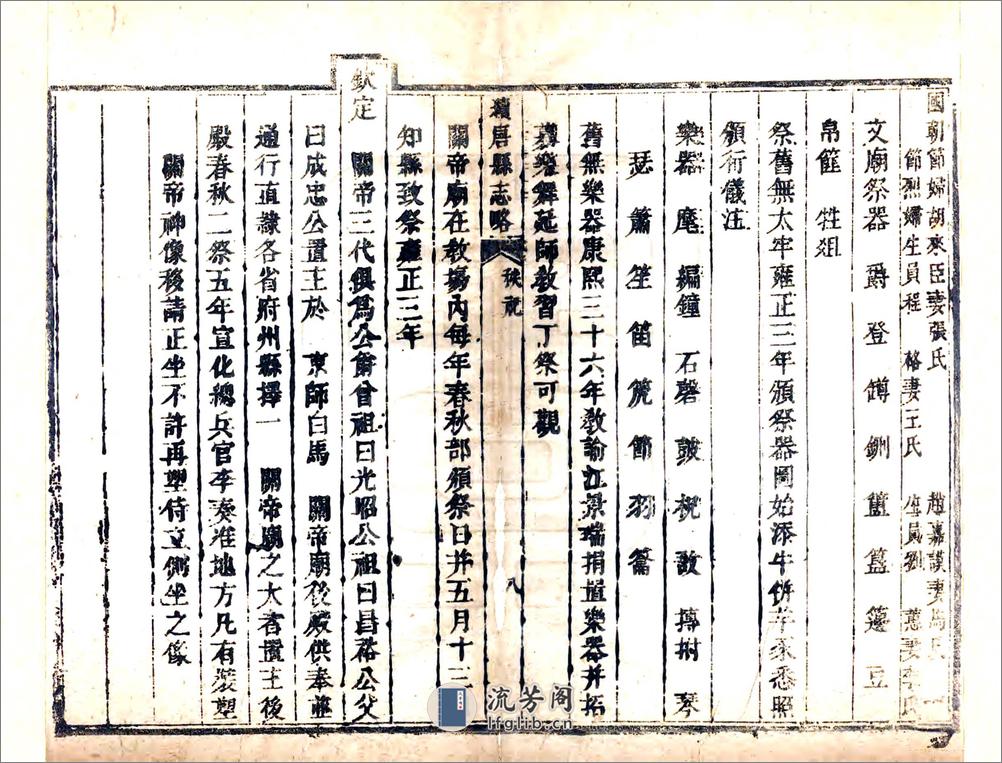 國朝節婦胡來臣妻張氏 趙嘉謨妻馮氏
節烈婦生員程 格妻王氏 生員劉 蕙妻李氏
文廟祭器 爵 登 鐏 鉶 簠 簋 籩 豆
帛篚 牲俎
祭舊無太牢雍正三年頒祭器圖始添牛併羊豕悉照
頒行儀注
樂器 麾 編鐘 石磬 鼓 柷 敔 摶拊 琴
瑟 簫 笙 笛 箎 節 羽 籥
舊無樂器康熙三十六年教諭江景瑞捐置樂器并招
募樂舞延師教習丁祭可觀
續唐縣志略 秩祀 八
關帝廟在教場內每年春秋部頒祭日并五月十三
知縣致祭雍正三年
欽定 關帝三代俱為公爵曾祖曰光昭公祖曰昌裕公父
曰成忠公置主於 京師白馬 關帝廟後殿供奉並
通行直隸各省府州縣擇一 關帝廟之大者置主後
殿春秋二祭五年宣化總兵官李奏准地方凡有裝塑
關帝神像務請正坐不許再塑侍立側坐之像
流芳阁
lfglib.cn